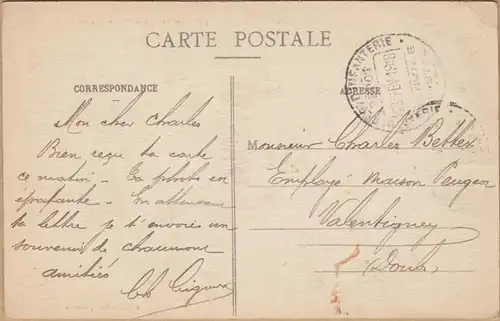 CARTE POSTALE
CORRESPONDANCE
Mon cher Charles
Bien reçu ta carte
ce matin. - Ta photo est
épatante. - En attendant
ta lettre je t'envoie un
souvenir de Chaumont
amitiés
Ch
ADRESSE
INFANTERIE
Monsieur Charles Bettex
Employé maison Peugeot
Valentigney
(Doubs)